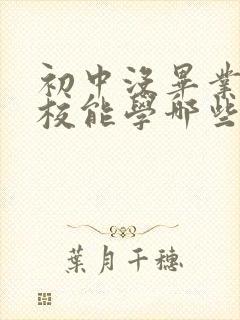 初中没畢業
校能學哪些
葉月千穗